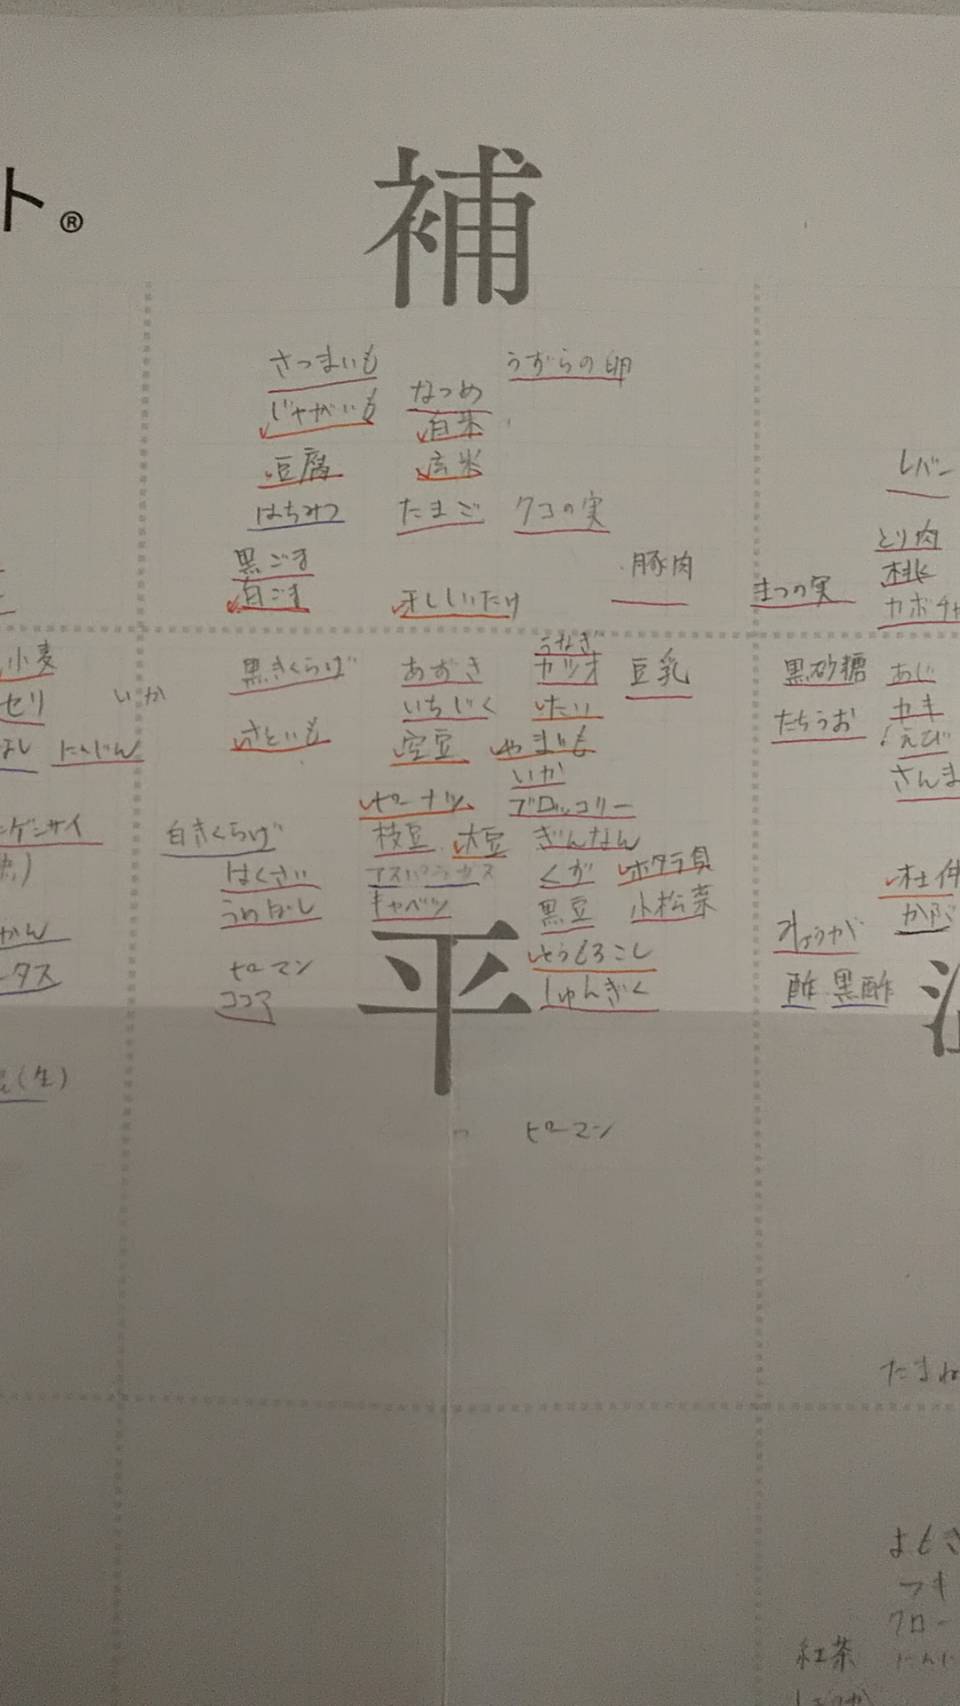 ト®
補
さつまいも
うずらの卵
じゃがいも
なつめ
白米
豆腐
玄米
はちみつ
たまご
クコの実
レバー
黒ごま
白ごま
干ししいたけ
豚肉
まつの実
とり肉
桃
カボチャ
小麦
セリ
いか
にんじん
黒きくらげ
あずき
うなぎ
カツオ
豆乳
黒砂糖
あじ
いちじく
たい
たちうお
カキ
さといも
空豆
やまいも
えび
いか
さんま
ピーナツ
ブロッコリー
ンゲンサイ
白きくらげ
枝豆
大豆
ぎんなん
はくさい
アスパラガス
ホタテ貝
杜仲
うめぼし
キャベツ
黒豆
小松菜
かぶ
かん
しょうが
タス
ピーマン
とうもろこし
ココア
平
しゅんぎく
酢 黒酢
(生)
ピーマン
たまね
よもぎ
フキ
クロー
にんに
紅茶